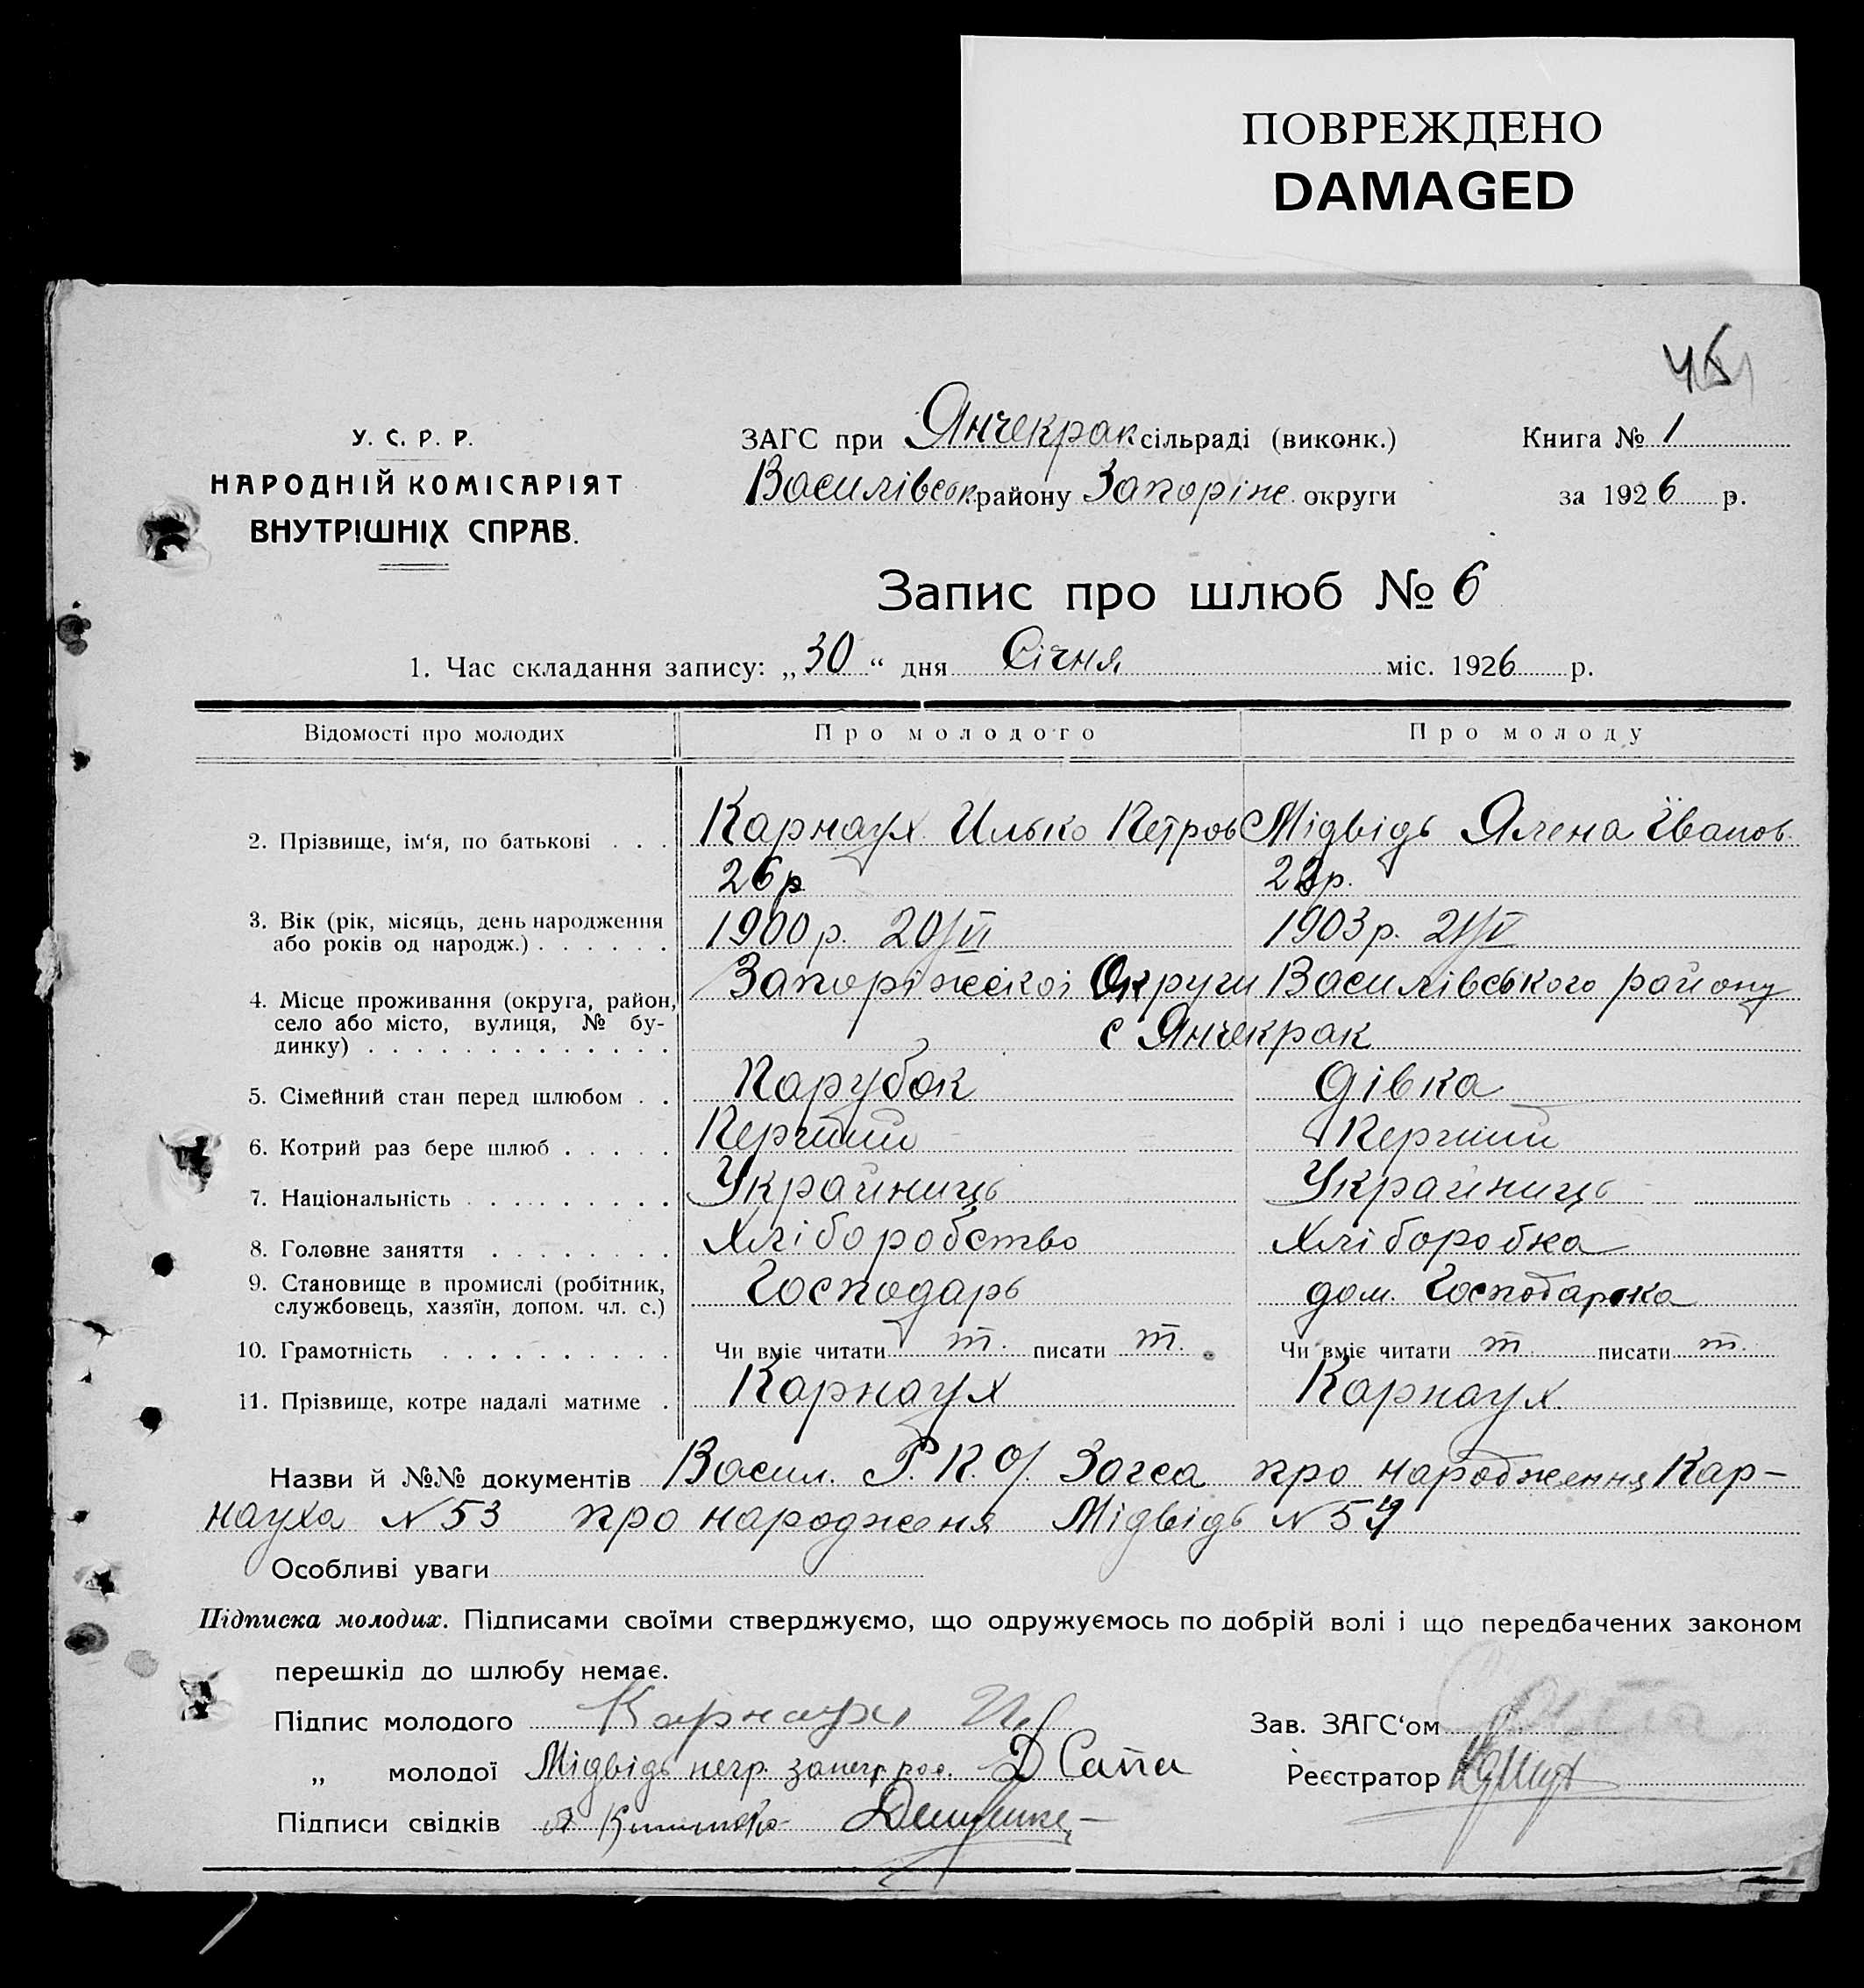 ПОВРЕЖДЕНО
DAMAGED
У. С. Р. Р.
НАРОДНІЙ КОМІСАРІЯТ
ВНУТРІШНІХ СПРАВ.
ЗАГС при Янчекрак сільраді (виконк.)
Василівськ району Запоріж округи
Книга № 1
за 1926 р.
Запис про шлюб № 6
1. Час складання запису: „30“ дня Січня міс. 1926 р.
Відомості про молодих Про молодого Про молоду
2. Прізвище, ім‘я, по батькові . . . Карнаух Илько Петров Мідвідь Ялена Іванов
26р 22р.
3. Вік (рік, місяць, день народження
або років од народж.) . . . . . . 1900 р. 20/VI 1903 р. 21/V
4. Місце проживання (округа, район, Запоріжської Округи Василівського району
село або місто, вулиця, № бу-
динку) . . . . . . . . . . . . . с Янчекрак
5. Сімейний стан перед шлюбом . . Парубок дівка
6. Котрий раз бере шлюб . . . . . Перший Перший
7. Національність . . . . . . . . . Украйниць Украйниць
8. Головне заняття . . . . . . . . Хліборобство Хліборобка
9. Становище в промислі (робітник,
службовець, хазяїн, допом. чл. с.) Господарь дом. Господарка
10. Грамотність . . . . . . . . . . Чи вміє читати т. писати т. Чи вміє читати т. писати т.
11. Прізвище, котре надалі матиме . Карнаух Карнаух.
Назви й №№ документів Васил. Р.К.О/. Загса про народження Кар-
науха № 53 про народженя Мідвідь № 54
Особливі уваги
Підписка молодих. Підписами своїми стверджуємо, що одружуємось по добрій волі і що передбачених законом
перешкід до шлюбу немає.
Підпис молодого Карнаух И.
Зав. ЗАГС‘ом
„ молодої Мідвідь негр. Д Сапа
Реєстратор
Підписи свідків